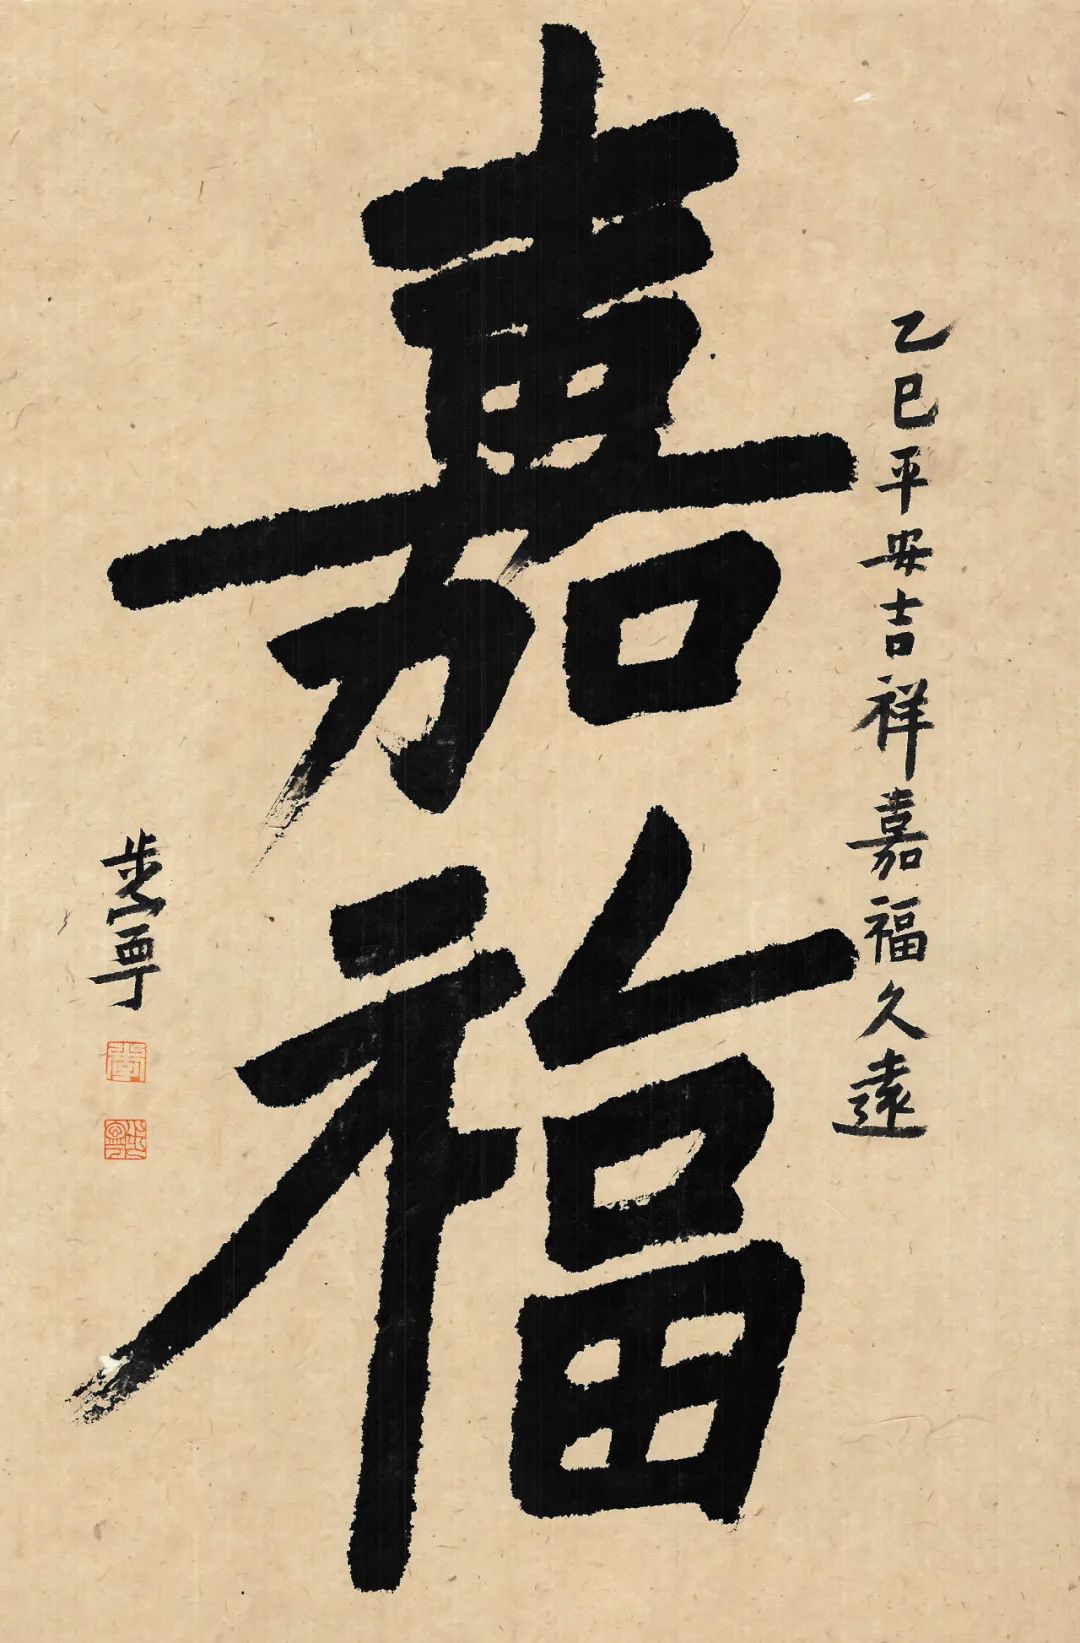 乙巳平安吉祥嘉福久遠
嘉福
步寧